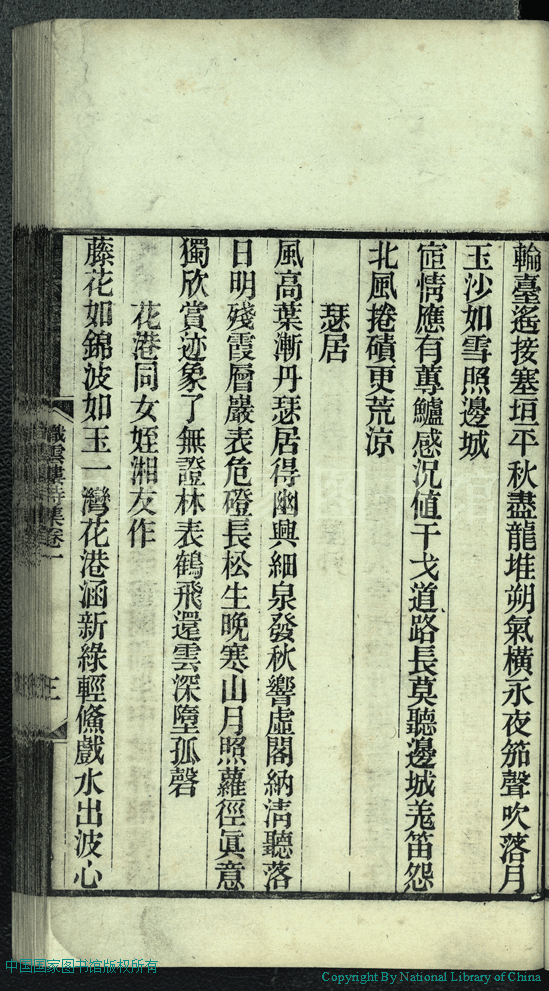 輪臺遙接塞垣平秋盡龍堆朔氣橫永夜笳聲吹落月
玉沙如雪照邊城
宦情應有蓴鱸感況值干戈道路長莫聽邊城羗笛怨
北風捲磧更荒涼
瑟居
風高葉漸丹瑟居得幽興細泉發秋響虛閣納清聽落
日明殘霞層巖表危磴長松生晚寒山月照蘿徑眞意
獨欣賞迹象了無證林表鶴飛還雲深墮孤磬
花港同女姪湘友作
藤花如錦波如玉一灣花港涵新綠輕鯈戲水出波心
織雲樓詩集卷一
三
中国国家图书馆版权所有
Copyright By National Library of China